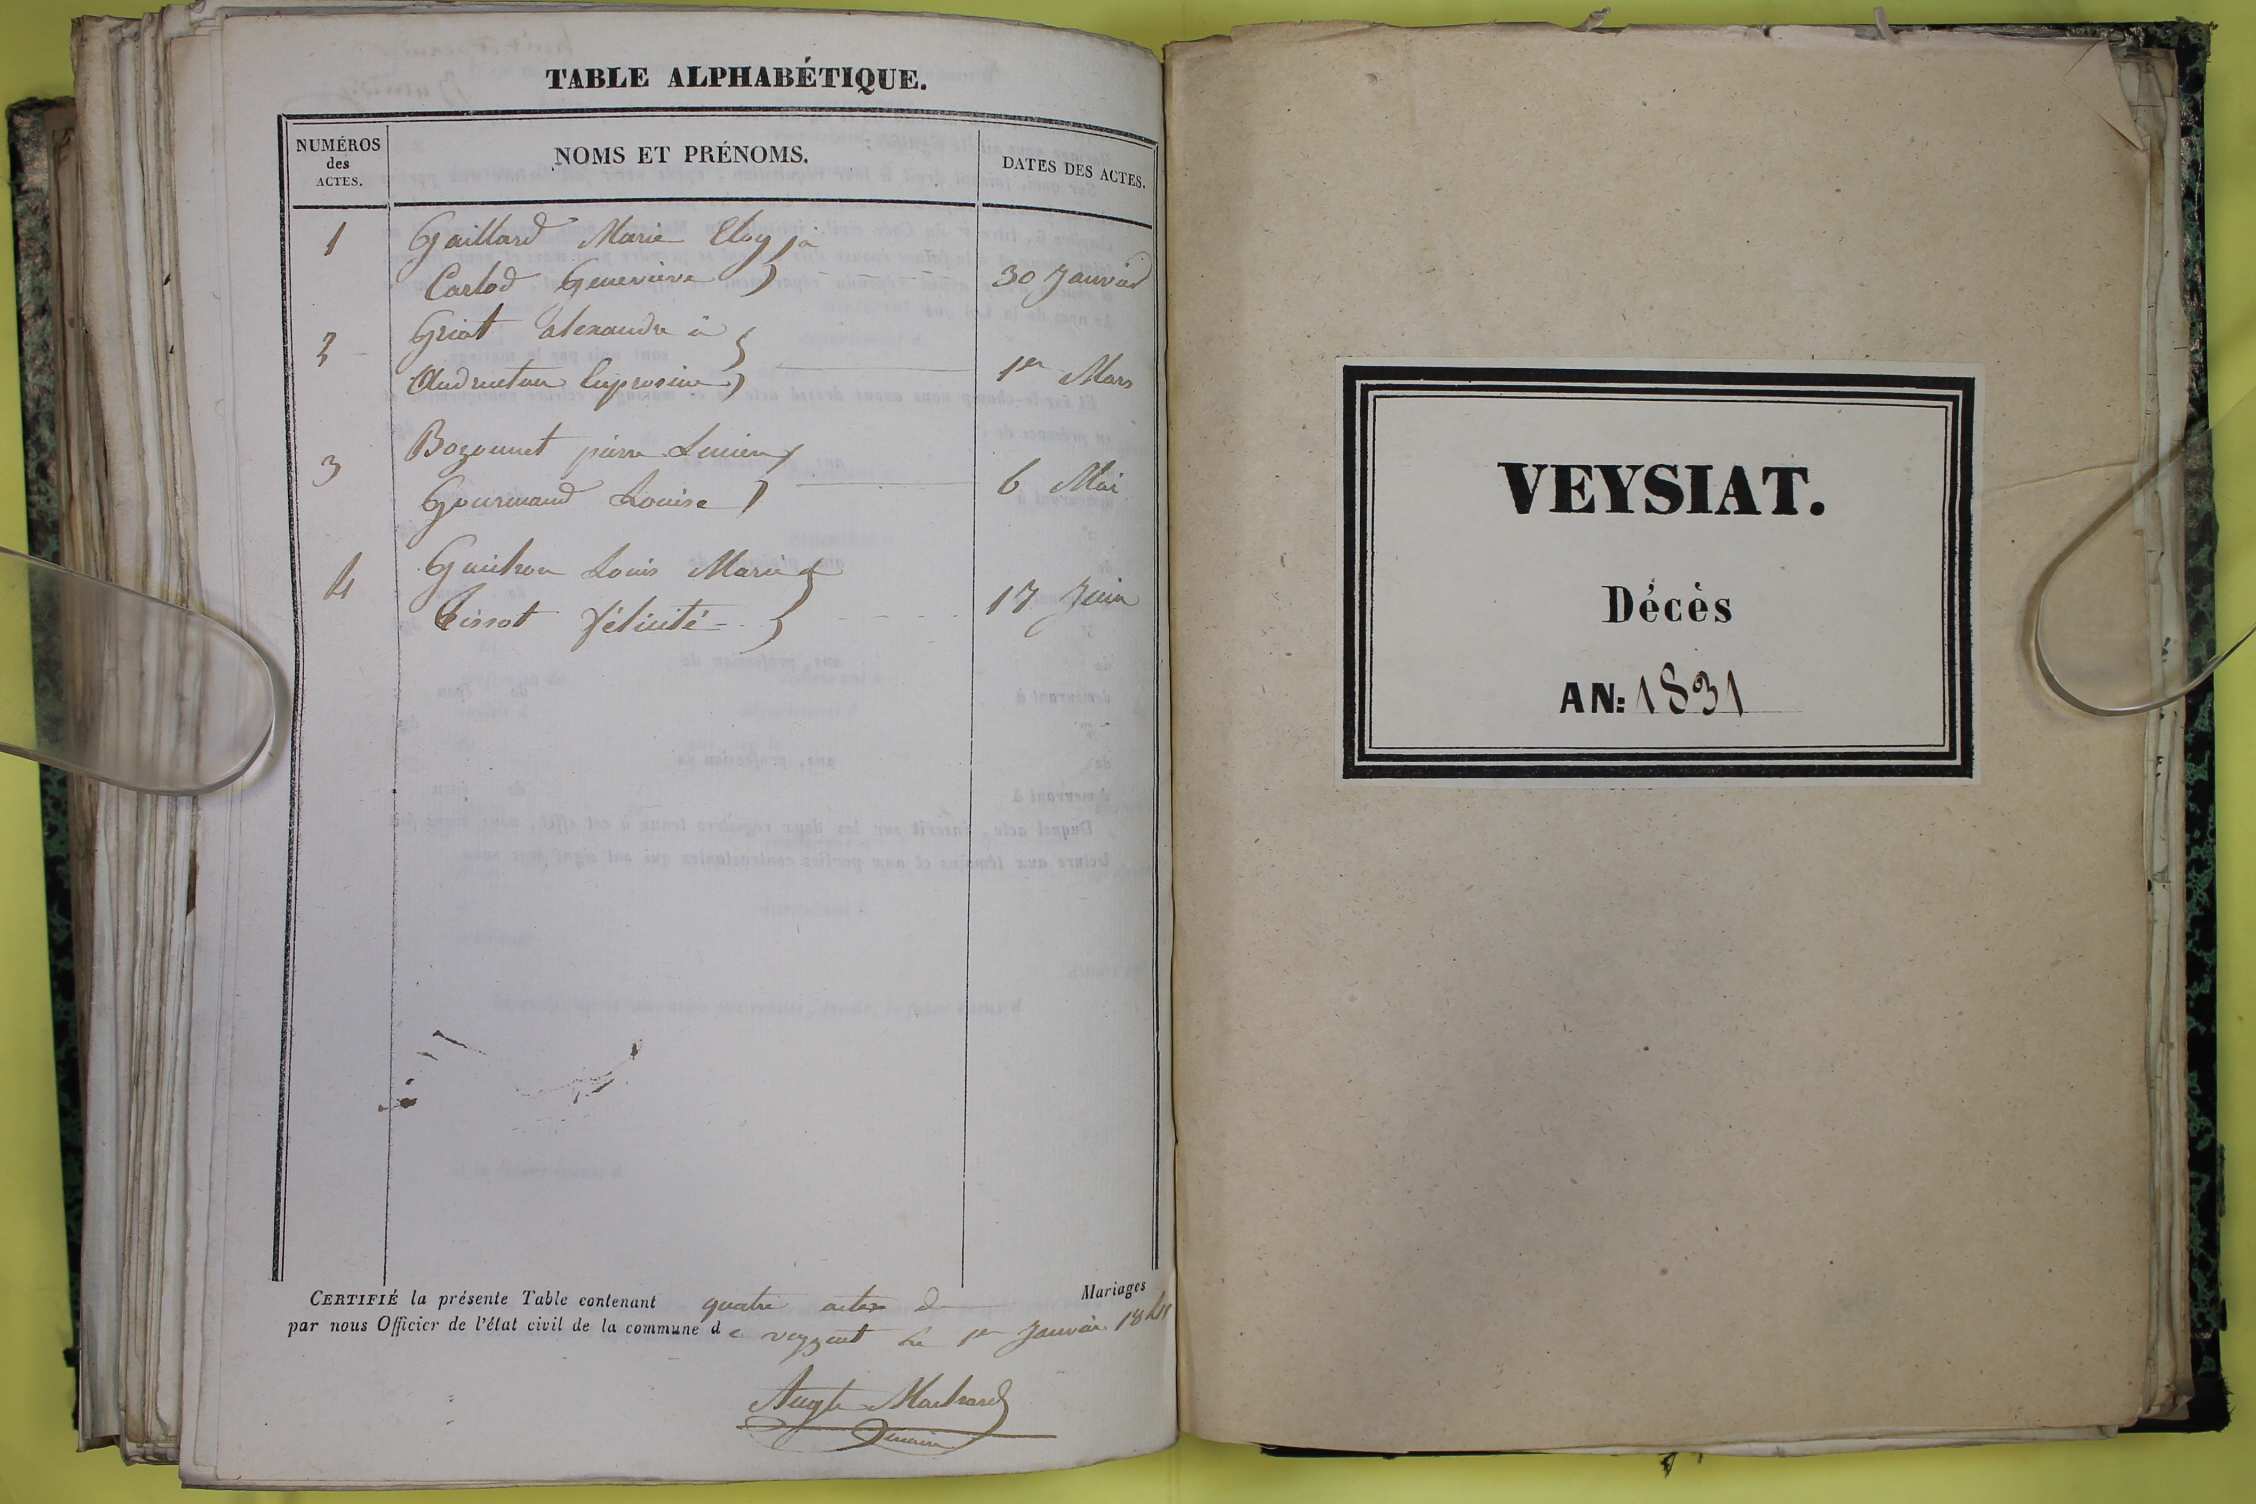 TABLE ALPHABÉTIQUE.
NUMÉROS
des
ACTES.
NOMS ET PRÉNOMS.
DATES DES ACTES.
1 Gaillard Marie Eloy a
Carlod Genevieve 30 Janvier
2 Griot alexandre à
euprosine 1er Mars
3 Bozonnet pierre Lucien
Gourmand Louise 6 Mai
4 Guichon Louis Marie
Tissot félicité 17 Juin
CERTIFIÉ la présente Table contenant quatre actes d Mariages
par nous Officier de l'état civil de la commune de veyziat Le 1er Janvier
maire
VEYSIAT.
Décès
AN: 1831